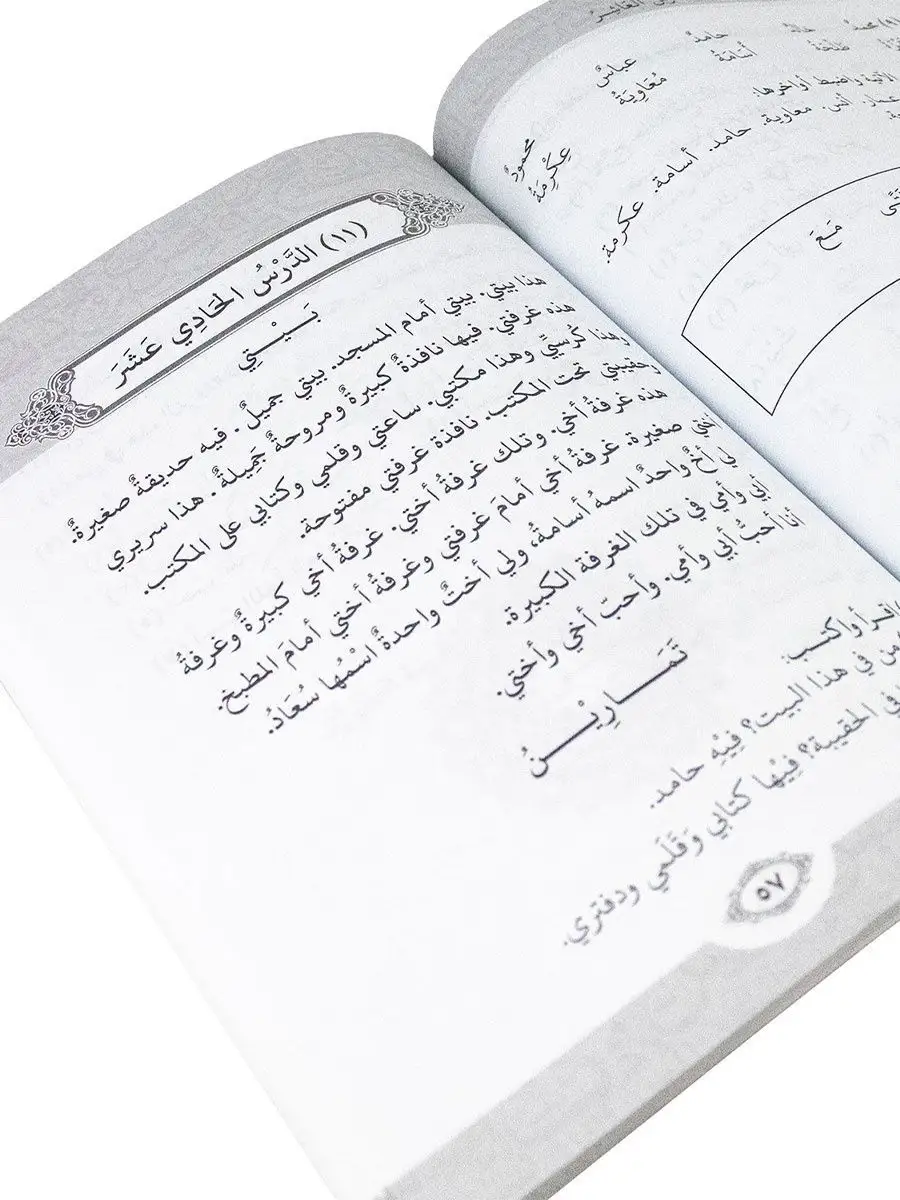 العَاشِرُ
خالدٌ حامدٌ عباسٌ محمودٌ
طلحةُ أسامةُ مُعَاوِيَةُ عِكْرِمَةُ
الآتية واضبط أواخرها.
عمار. أنس. معاوية. حامد. أسامة. عكرمة.
مَعَ
(١١) الدَّرْسُ الحَادِي عَشَرَ
بَـيْـتِي
هذا بيتي. بيتي أمام المسجد. بيتي جميلٌ. فيه حديقةٌ صغيرةٌ.
هذه غرفتي. فيها نافذةٌ كبيرةٌ ومروحةٌ جَمِيلةٌ. هذا سريري
وهذا كُرْسِيّي وهذا مكتبي. ساعتي وقلمي وكتابي على المكتب.
وحقيبتي تحت المكتب. نافذة غرفتي مفتوحة.
هذه غرفةُ أخي. وتلك غرفةُ أختي. غرفةُ أخي كبيرةٌ وغرفةُ
أختي صغيرة. غرفةُ أخي أمامَ غرفتي وغرفةُ أختي أمامَ المطبخ.
لي أخٌ واحدٌ اسمهُ أسامةُ، ولي أختٌ واحدةٌ اسْمُها سُعَادُ.
أبي وأمي في تلك الغرفة الكبيرة.
أنا أحبُّ أبي وأمي. وأحبّ أخي وأختي.
تَمَـارِيْـنُ
اقرأ واكتب:
من في هذا البيت؟ فِيْهِ حامد.
في الحقيبة؟ فِيْها كتابي وَقَلَمي ودفتري.
٥٧